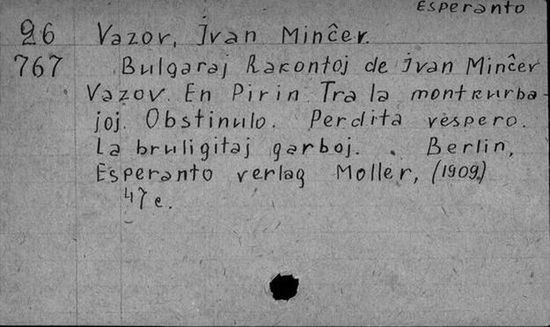 Esperanto
26 Vazov, Ivan Minĉev.
767 Bulgaraj Rakontoj de Ivan Minĉev
Vazov. En Pirin. Tra la montkurba-
joj. Obstinulo. Perdita vespero.
La bruligitaj garboj. . Berlin,
Esperanto verlag Moller, (1909)
47 c.